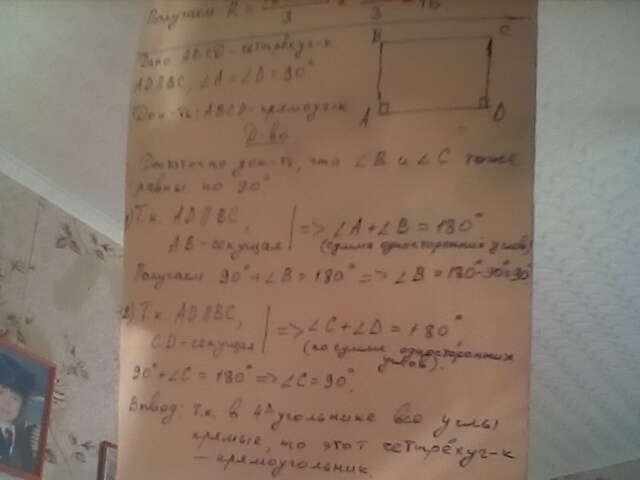 Получаем R =
Дано ABCD - четырёхуг-к
AD∥BC, ∠A = ∠D = 90°
Док-ть: ABCD - прямоуг-к
B C
A D
Д-во
Достаточно док-ть, что ∠B и ∠C тоже
равны по 90°
1) Т.к. AD∥BC,
AB - секущая | => ∠A + ∠B = 180°
(сумма односторонних углов)
Получаем 90° + ∠B = 180° => ∠B = 180° - 90° = 90°
2) Т.к. AD∥BC,
CD - секущая | => ∠C + ∠D = 180°
(по сумме односторонних
углов).
90° + ∠C = 180° => ∠C = 90°.
Вывод: т.к. в 4хугольнике все углы
прямые, то этот четырёхуг-к
- прямоугольник.